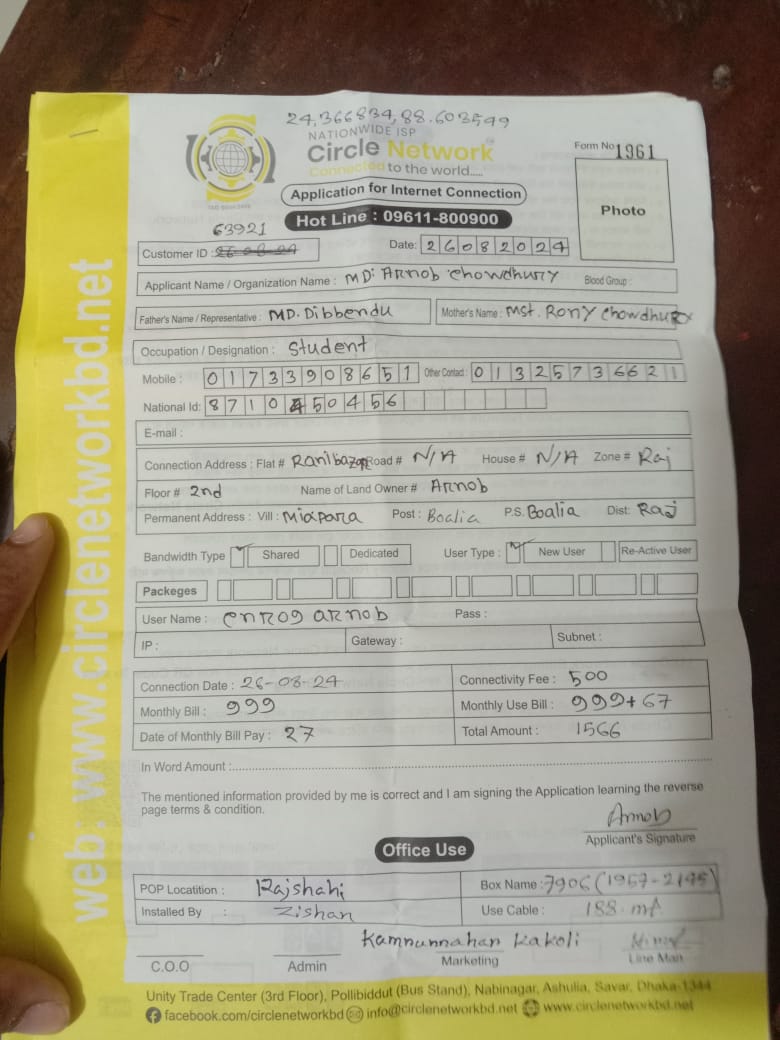 24.366834,88.603549
NATIONWIDE ISP
Circle Network
Connected to the world.....
Form No 1961
Photo
Application for Internet Connection
Hot Line : 09611-800900
63921
Customer ID : 26-08-24
Date: 26082024
Applicant Name / Organization Name : MD: Arnob Chowdhury Blood Group :
Father's Name / Representative : MD. Dibbendu Mother's Name : Mst. Rony Chowdhury
Occupation / Designation : Student
Mobile : 01733908651 Other Contact : 01325736621
National Id: 8710450456
E-mail :
Connection Address : Flat # Ranibazar Road # N/A House # N/A Zone # Raj
Floor # 2nd Name of Land Owner # Arnob
Permanent Address : Vill : Miapara Post : Boalia P.S. Boalia Dist: Raj
Bandwidth Type Shared Dedicated User Type : New User Re-Active User
Packeges
User Name : cnrog arnob Pass :
IP : Gateway : Subnet :
Connection Date : 26-08-24 Connectivity Fee : 500
Monthly Bill : 999 Monthly Use Bill : 999+67
Date of Monthly Bill Pay : 27 Total Amount : 1566
In Word Amount :
The mentioned information provided by me is correct and I am signing the Application learning the reverse
page terms & condition.
Arnob
Applicant's Signature
Office Use
POP Locatition : Rajshahi Box Name : 7906 (1957-2145)
Installed By : Zishan Use Cable : 188
Kamnunnahan Kakoli
C.O.O Admin Marketing Line Man
Unity Trade Center (3rd Floor), Pollibiddut (Bus Stand), Nabinagar, Ashulia, Savar, Dhaka-1344
facebook.com/circlenetworkbd info@circlenetworkbd.net www.circlenetworkbd.net
web: www.circlenetworkbd.net